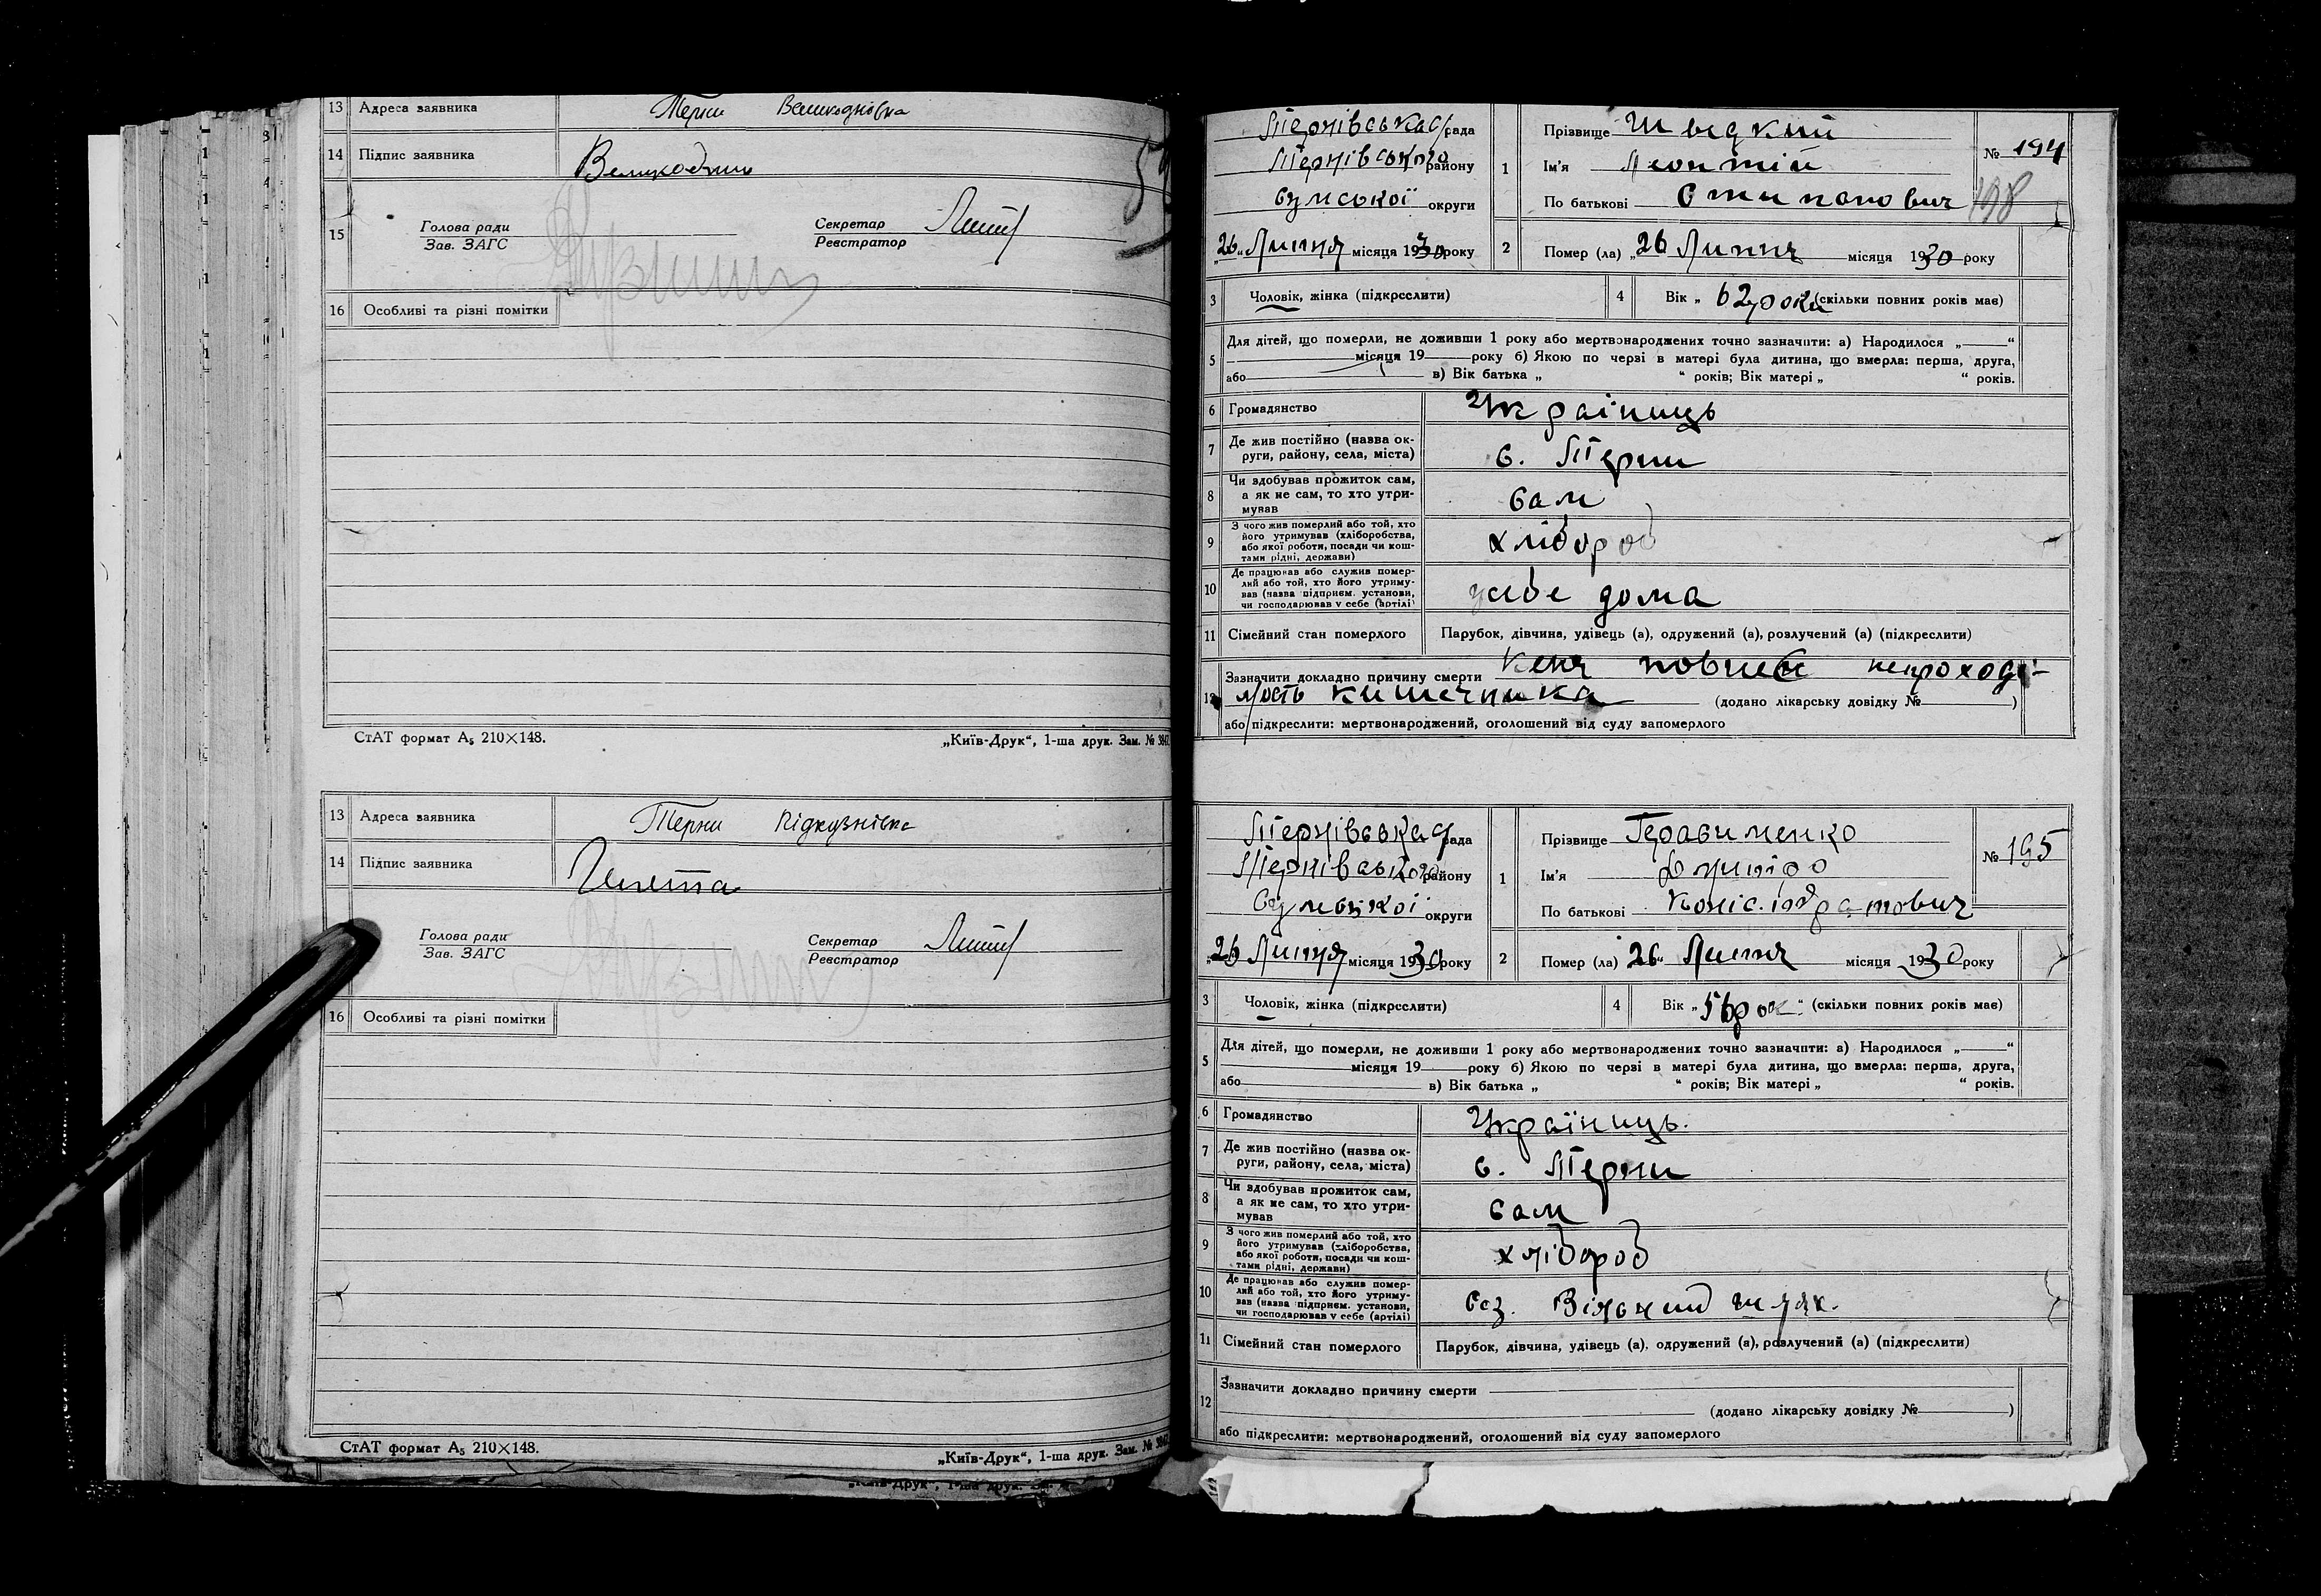 13 Адреса заявника Терни Великоднівка
14 Підпис заявника Великодний
15 Голова ради
Зав. ЗАГС
Секретар
Реєстратор
16 Особливі та різні помітки
СтАТ формат А₅ 210×148.
„Київ-Друк“, 1-ша друк. Зам. №
13 Адреса заявника Терни Підкузнівка
14 Підпис заявника
Голова ради
Зав. ЗАГС
Секретар
Реєстратор
16 Особливі та різні помітки
СтАТ формат А₅ 210×148.
„Київ-Друк“, 1-ша друк. Зам. №
„Київ-Друк“, 1-ша друк.
Тернівська с/рада
Тернівського району
Сумської округи
„26“ Липня місяця 1930 року
1 Прізвище Швидкий
Ім'я Леонтій
По батькові Стипанович
№ 194
198
2 Помер (ла) „26 Липня місяця 1930 року
3 Чоловік, жінка (підкреслити)
4 Вік „ 62 роки (скільки повних років має)
5 Для дітей, що померли, не доживши 1 року або мертвонароджених точно зазначити: а) Народилося „ “
місяця 19 року б) Якою по черзі в матері була дитина, що вмерла: перша, друга,
або в) Вік батька „ “ років; Вік матері „ “ років.
6 Громадянство Україниць
7 Де жив постійно (назва ок-
руги, району, села, міста) с. Терни
8 Чи здобував прожиток сам,
а як не сам, то хто утри-
мував сам
9 З чого жив померлий або той, хто
його утримував (хліборобства,
або якої роботи, посади чи кош-
тами рідні, держави) хлібороб
10 Де працював або служив помер-
лий або той, хто його утриму-
вав (назва підприєм. установи,
чи господарював у себе (артілі) усебе дома
11 Сімейний стан померлого Парубок, дівчина, удівець (а), одружений (а), розлучений (а) (підкреслити)
12 Зазначити докладно причину смерти непроході-
мость кишечника (додано лікарську довідку № )
або підкреслити: мертвонароджений, оголошений від суду запомерлого
Тернівська с/рада
Тернівського району
Сумської округи
„26 Липня місяця 1930 року
1 Прізвище Герасименко
Ім'я Дмитро
По батькові
№ 195
2 Помер (ла) „26“ Липня місяця 1930 року
3 Чоловік, жінка (підкреслити)
4 Вік „ 56 рок “ (скільки повних років має)
5 Для дітей, що померли, не доживши 1 року або мертвонароджених точно зазначити: а) Народилося „ “
місяця 19 року б) Якою по черзі в матері була дитина, що вмерла: перша, друга,
або в) Вік батька „ “ років; Вік матері „ “ років.
6 Громадянство Україниць.
7 Де жив постійно (назва ок-
руги, району, села, міста) с. Терни
8 Чи здобував прожиток сам,
а як не сам, то хто утри-
мував сам
9 З чого жив померлий або той, хто
його утримував (хліборобства,
або якої роботи, посади чи кош-
тами рідні, держави) хлібороб
10 Де працював або служив помер-
лий або той, хто його утриму-
вав (назва підприєм. установи,
чи господарював у себе (артілі) Соз. Вільний шлях.
11 Сімейний стан померлого Парубок, дівчина, удівець (а), одружений (а), розлучений (а) (підкреслити)
12 Зазначити докладно причину смерти
(додано лікарську довідку № )
або підкреслити: мертвонароджений, оголошений від суду запомерлого